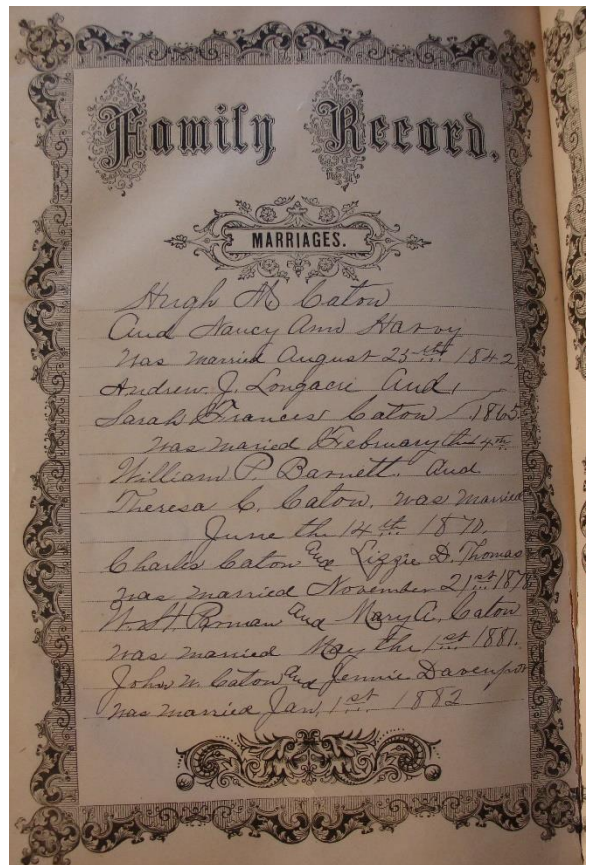 Family Record.
MARRIAGES.
Hugh M Caton
And Nancy Ann Harvy
was married August 25th 1842
Andrew. J. Longacre And
Sarah Frances Caton 1865
was maried February the 4th
William P. Barnett. And
Theresa C. Caton. was married
June the 14th 1870.
Charles Caton and Lizzie D. Thomas
was married November 21st 187
W. H. Roman and Mary A. Caton
was married May the 1st 1881.
John W. Caton and Jennie Davenport
was married Jan. 1st 1882